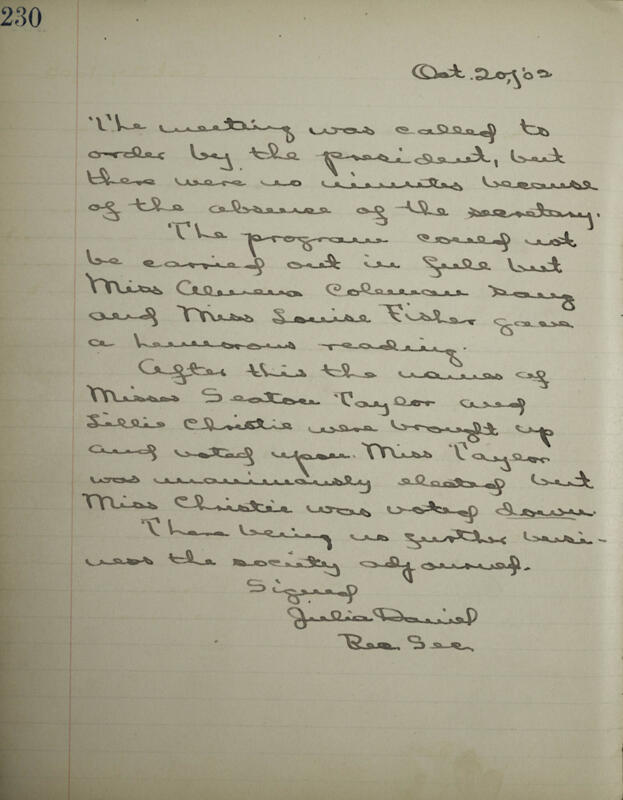 230
Oct. 20, '02
The meeting was called to
order by the president, but
there were no minutes because
of the absence of the secretary.
The program could not
be carried out in full but
Miss Almena Coleman sang
and Miss Louise Fisher gave
a humorous reading.
After this the names of
Misses Seaton Taylor and
Lillie Christie were brought up
and voted upon. Miss Taylor
was unanimously elected but
Miss Christie was voted down.
There being no further busi-
ness the society adjourned.
Signed
Julia Daniel
Rec. Sec.